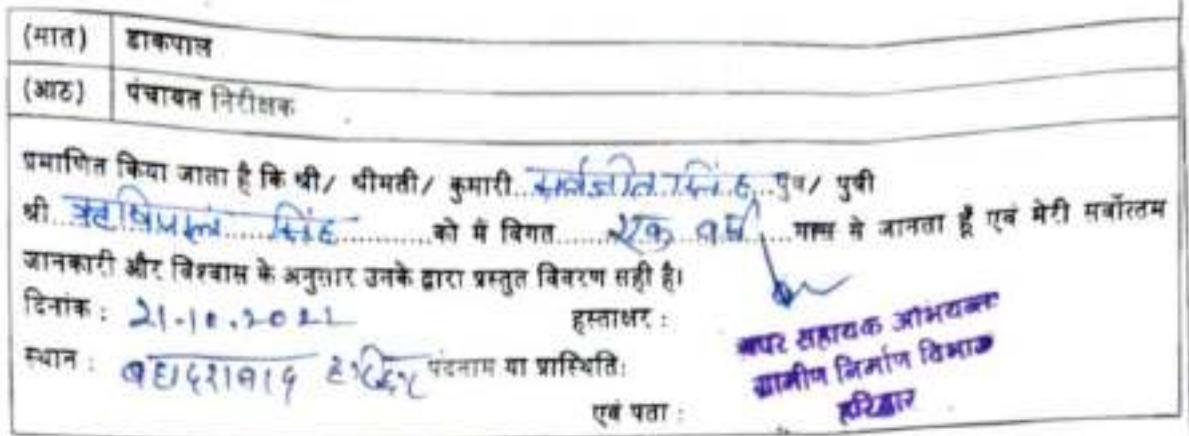 (सात) डाकपाल
(आठ) पंचायत निरीक्षक
प्रमाणित किया जाता है कि श्री/ श्रीमती/ कुमारी.. सर्वजीत सिंह ..पुत्र/ पुत्री
श्री.. ऋषिपाल ..... सिंह ..........को मैं विगत...... एक वर्ष ......मास से जानता हूँ एवं मेरी सर्वोत्तम
जानकारी और विश्वास के अनुसार उनके द्वारा प्रस्तुत विवरण सही है।
दिनांक : 21.10.2022 हस्ताक्षर :
स्थान : बहादराबाद हरिद्वार पदनाम या प्रास्थिति:
एवं पता :
अपर सहायक अभियन्ता
ग्रामीण निर्माण विभाग
हरिद्वार